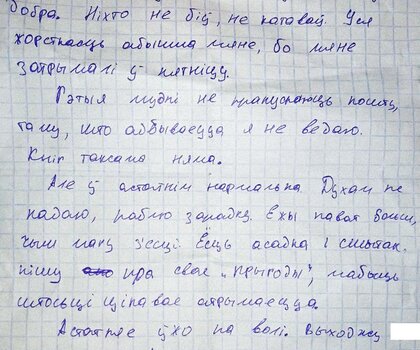 добра. Ніхто не біў, не катаваў. Уся
жорсткасць абышла мяне, бо мяне
затрымалі ў пятніцу.
Гэтыя людзі не прапускаюць пошту,
таму, што адбываецца я не ведаю.
Кніг таксама няма.
Але ў астатнім нармальна Духам не
падаю, раблю зарадку. Ежы нават больш,
чым магу з'есці. Ёсць асадка і сшытак.
пішу пра свае "прыгоды", мабыць
штосьці цікавае атрымаецца.
Астатняе ўжо на волі. Выходжу